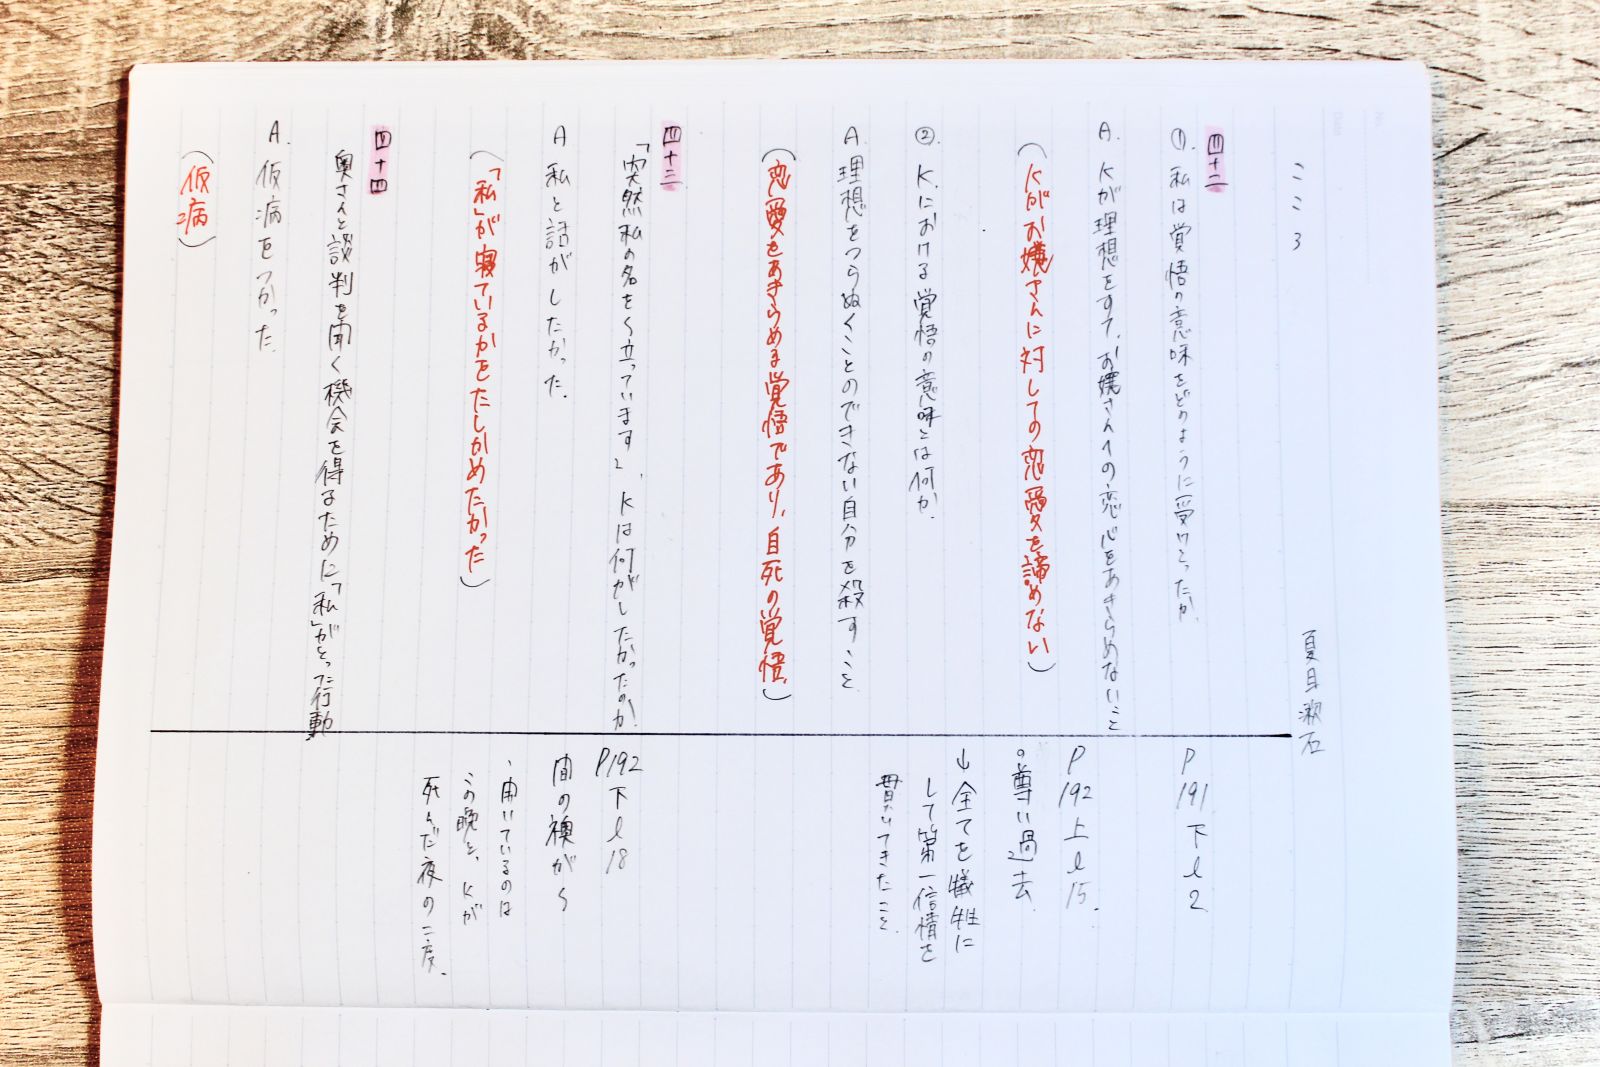 こころ
夏目漱石
四十二
①. 私は覚悟の意味をどのように受けとったか.
A. Kが理想をすて、お嬢さんへの恋心をあきらめないこと
(Kがお嬢さんに対しての恋愛を諦めない)
②. K.における覚悟の意味とは何か.
A 理想をつらぬくことのできない自分を殺すこと
(恋愛をあきらめる覚悟であり、自死の覚悟.)
四十三
「突然私の名を〜立っています」、Kは何がしたかったのか.
A 私と話がしたかった.
(「私」が寝ているかをたしかめたかった)
四十四
奥さんと談判を開く機会を得るために「私」がとった行動
A. 仮病をつかった.
(仮病)
P191下l2
P192上l15.
○尊い過去.
↓全てを犠牲に
して第一信情を
貫いてきたこと.
P192下l18
間の襖が〜
、開いているのは
この晩と、Kが
死んだ夜の二度.